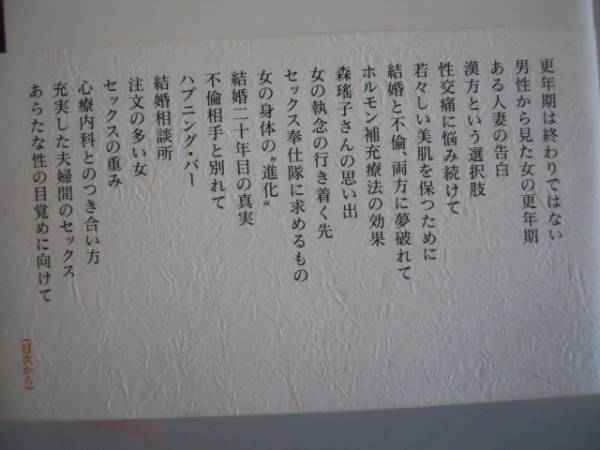 更年期は終わりではない
男性から見た女の更年期
ある人妻の告白
漢方という選択肢
性交痛に悩み続けて
若々しい美肌を保つために
結婚と不倫、両方に夢破れて
ホルモン補充療法の効果
森瑤子さんの思い出
女の執念の行き着く先
セックス奉仕隊に求めるもの
女の身体の〝進化〟
結婚二十年目の真実
不倫相手と別れて
ハプニング・バー
結婚相談所
注文の多い女
セックスの重み
心療内科とのつき合い方
充実した夫婦間のセックス
あらたな性の目覚めに向けて
(目次から)